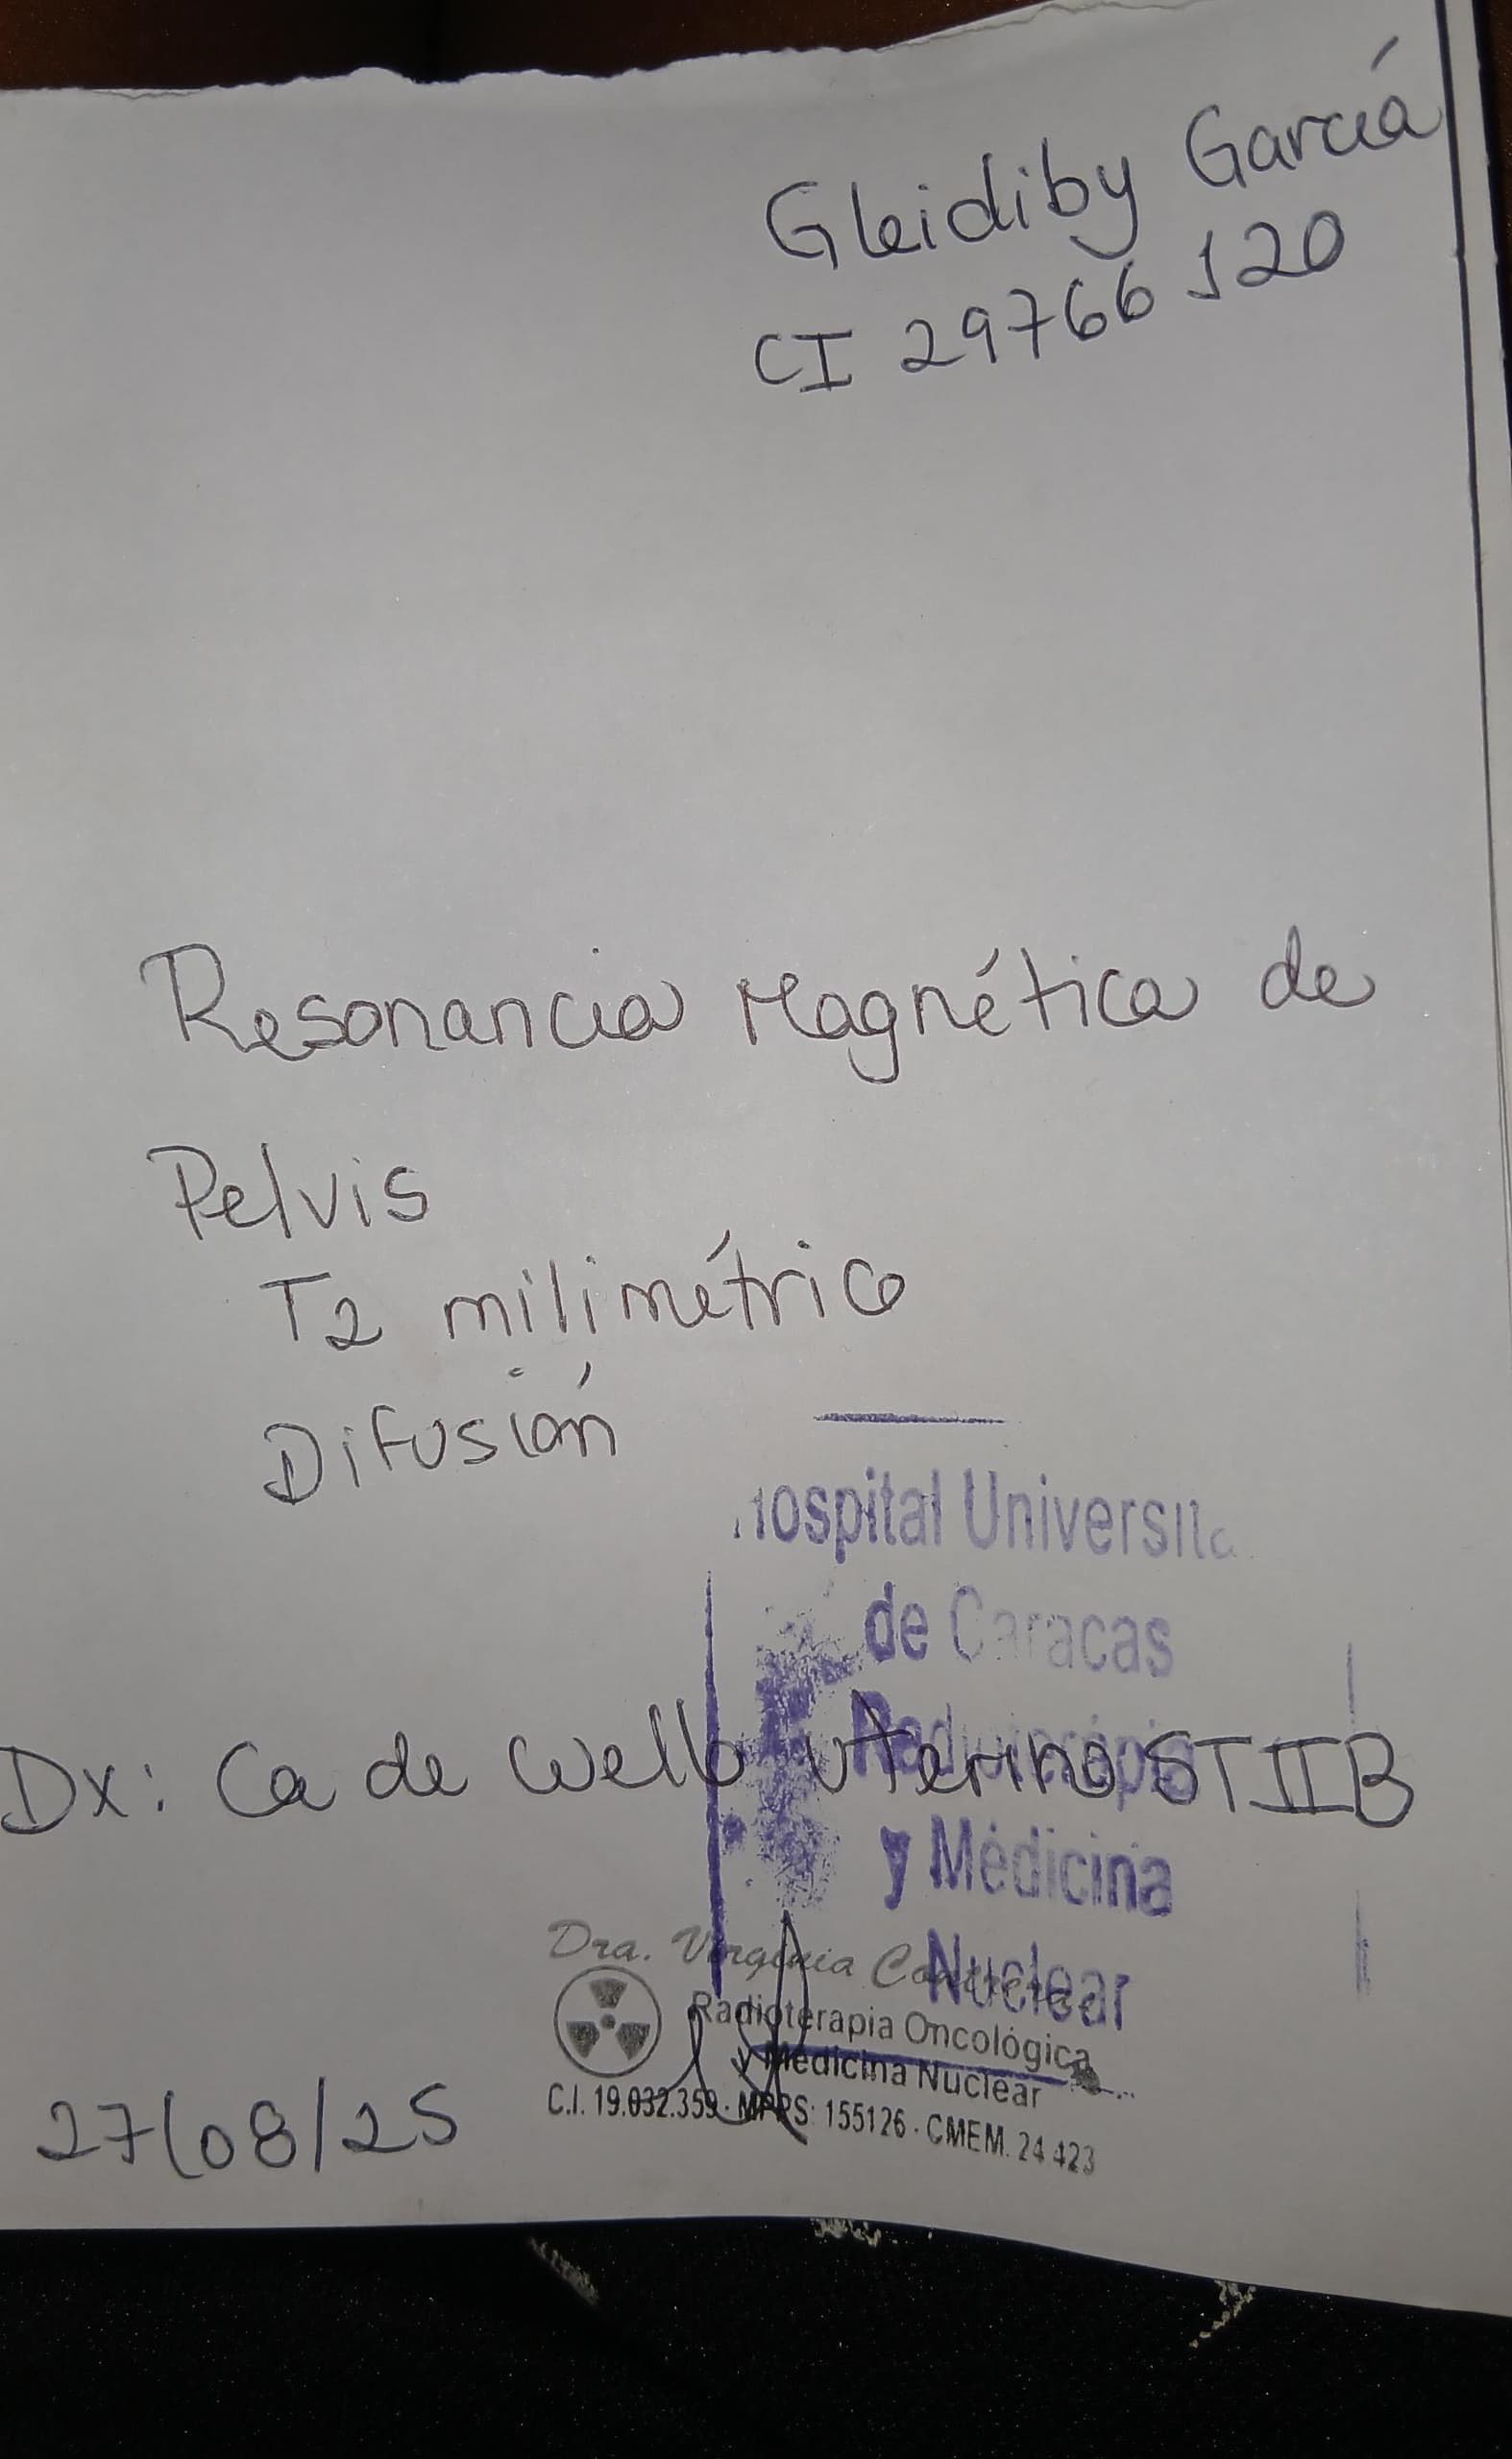 Gleidiby García
CI 29766120
Resonancia Magnética de
Pelvis
T2 milimétrico
Difusión
Hospital Universita
de Caracas
Radioterapia
y Medicina
Nuclear
Dx: Ca de cuello uterino STIIB
Dra. Virginia Contreras
Radioterapia Oncológica
y Medicina Nuclear
C.I. 19.032.359 · MPPS: 155126 · CMEM. 24 423
27/08/25